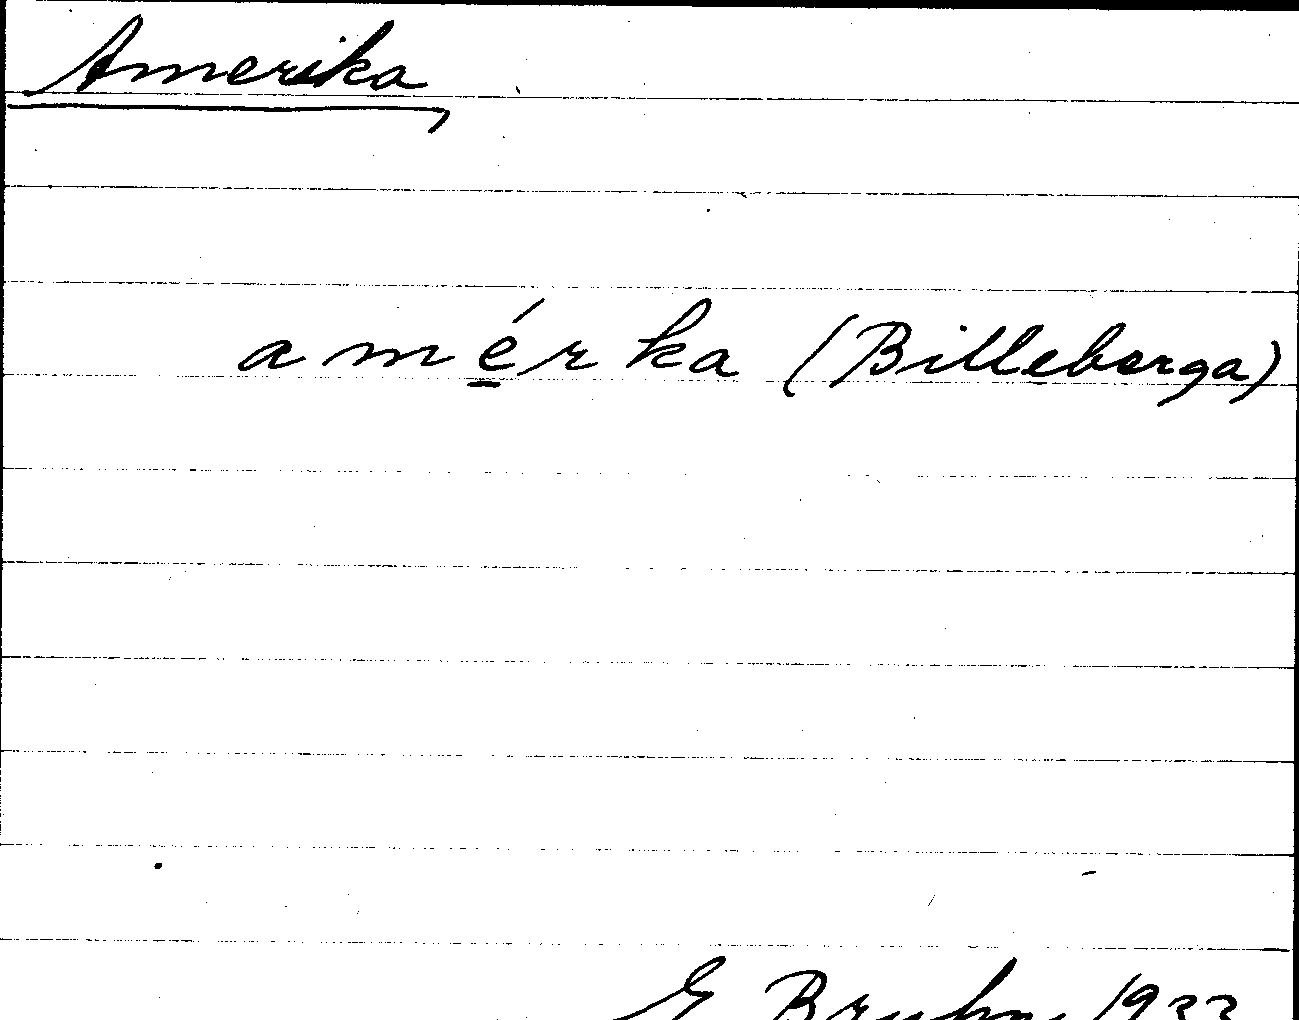 Amerika
amé̱rka (Billeberga)
E Bruhn 1933